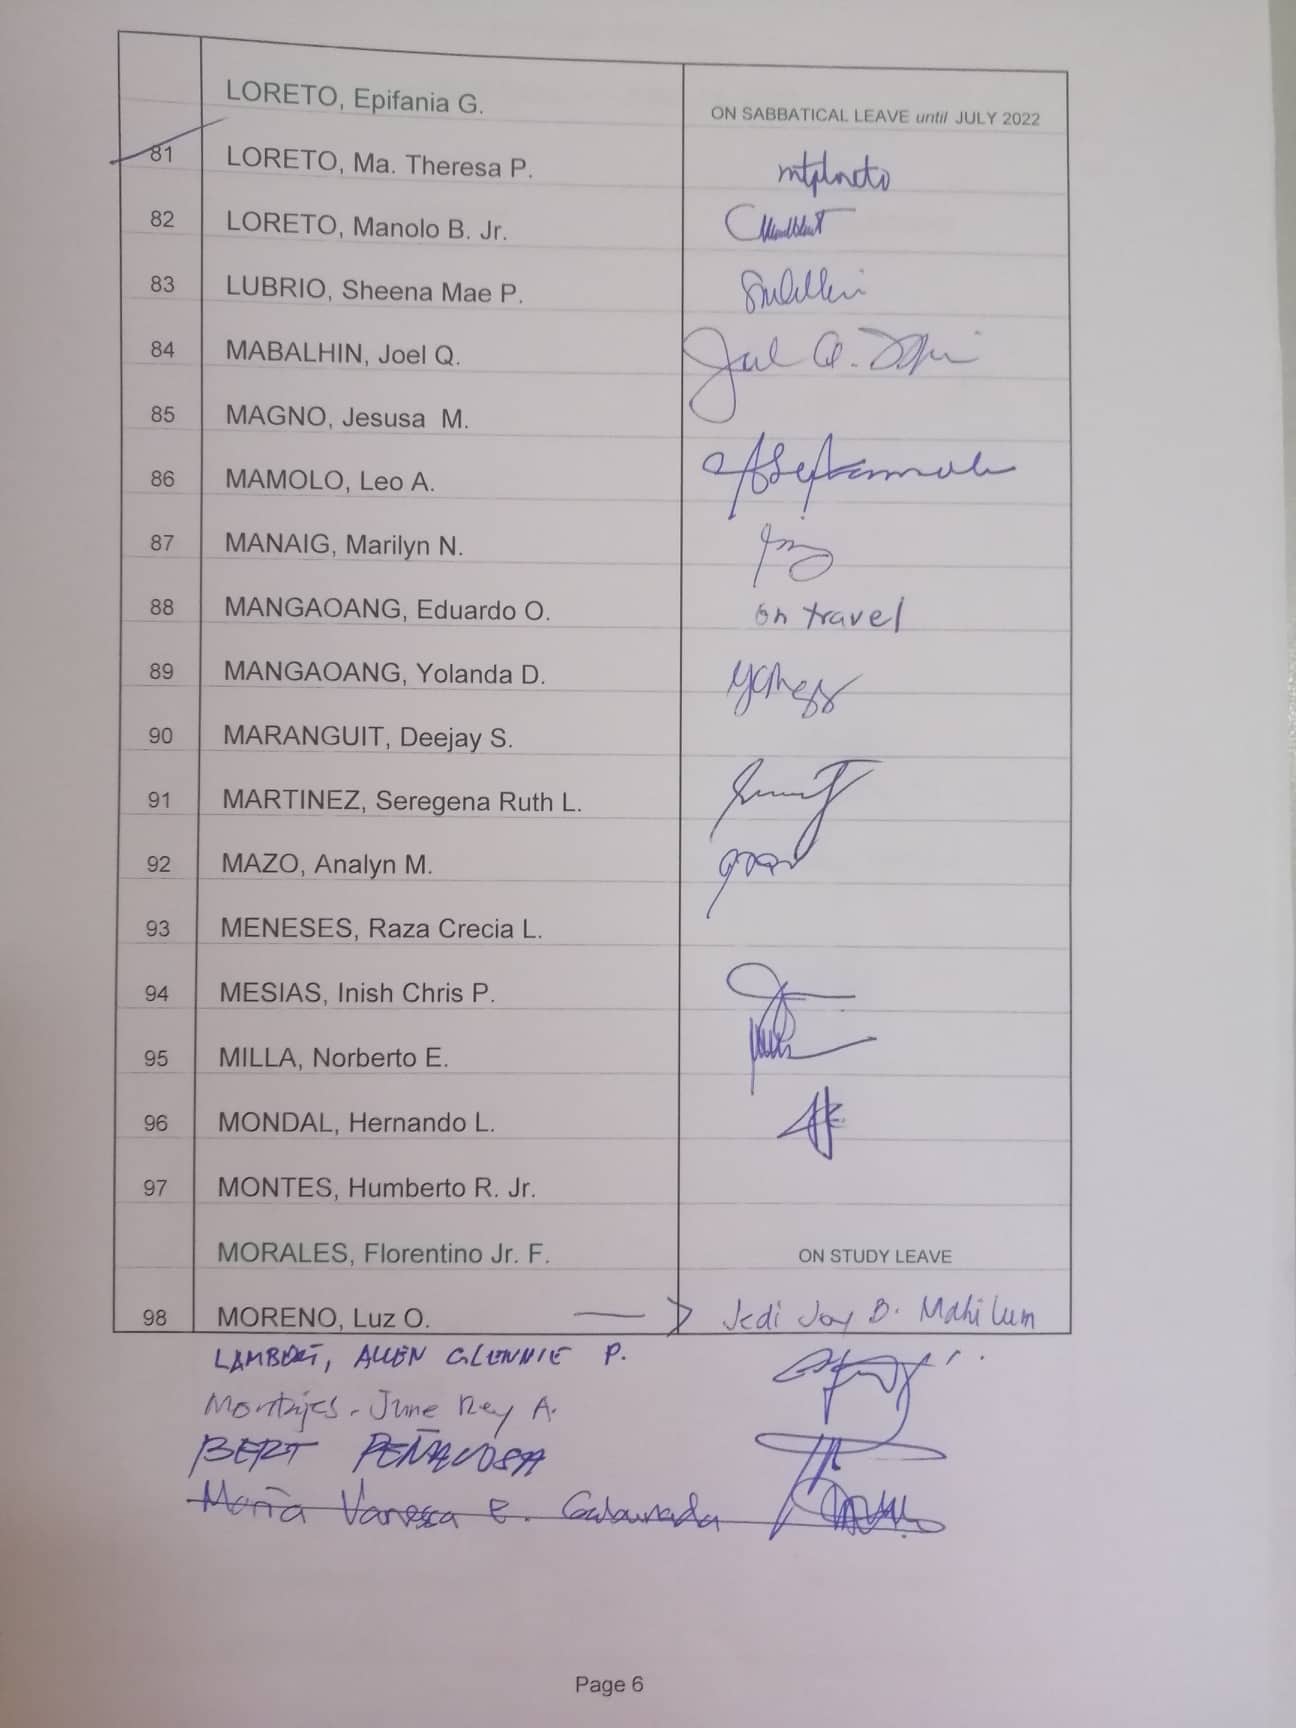 LORETO, Epifania G. ON SABBATICAL LEAVE until JULY 2022
81 LORETO, Ma. Theresa P. mtploreto
82 LORETO, Manolo B. Jr.
83 LUBRIO, Sheena Mae P.
84 MABALHIN, Joel Q.
85 MAGNO, Jesusa M.
86 MAMOLO, Leo A.
87 MANAIG, Marilyn N.
88 MANGAOANG, Eduardo O. on travel
89 MANGAOANG, Yolanda D.
90 MARANGUIT, Deejay S.
91 MARTINEZ, Seregena Ruth L.
92 MAZO, Analyn M.
93 MENESES, Raza Crecia L.
94 MESIAS, Inish Chris P.
95 MILLA, Norberto E.
96 MONDAL, Hernando L.
97 MONTES, Humberto R. Jr.
MORALES, Florentino Jr. F. ON STUDY LEAVE
98 MORENO, Luz O. Jedi Joy B. Mahilum
LAMBERT, ALLEN GLENNIE P.
June Rey A.
BERT PEÑALOSA
Maria Vanessa E. Gabunada
Page 6